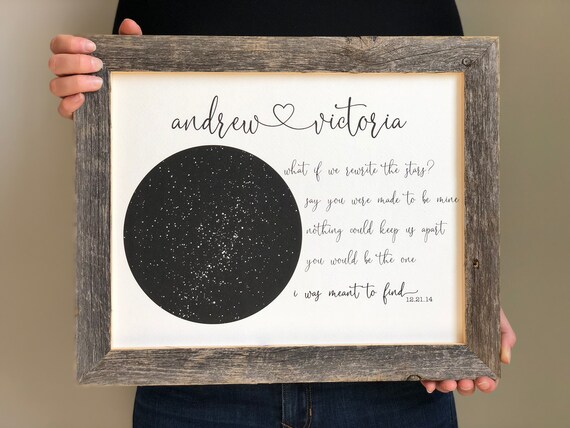 andrew♡victoria
what if we rewrite the stars?
say you were made to be mine
nothing could keep us apart
you would be the one
i was meant to find
12.21.14